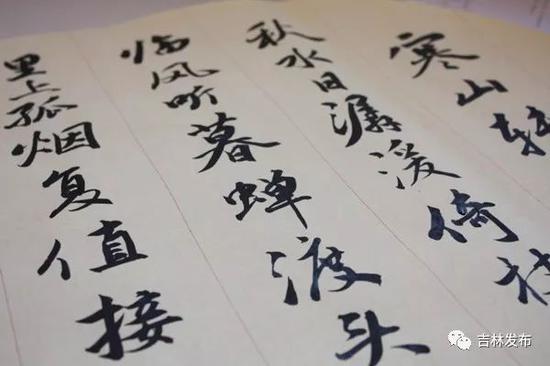 寒山转
秋水日潺湲倚杖
临风听暮蝉渡头
里上孤烟复值接
吉林发布